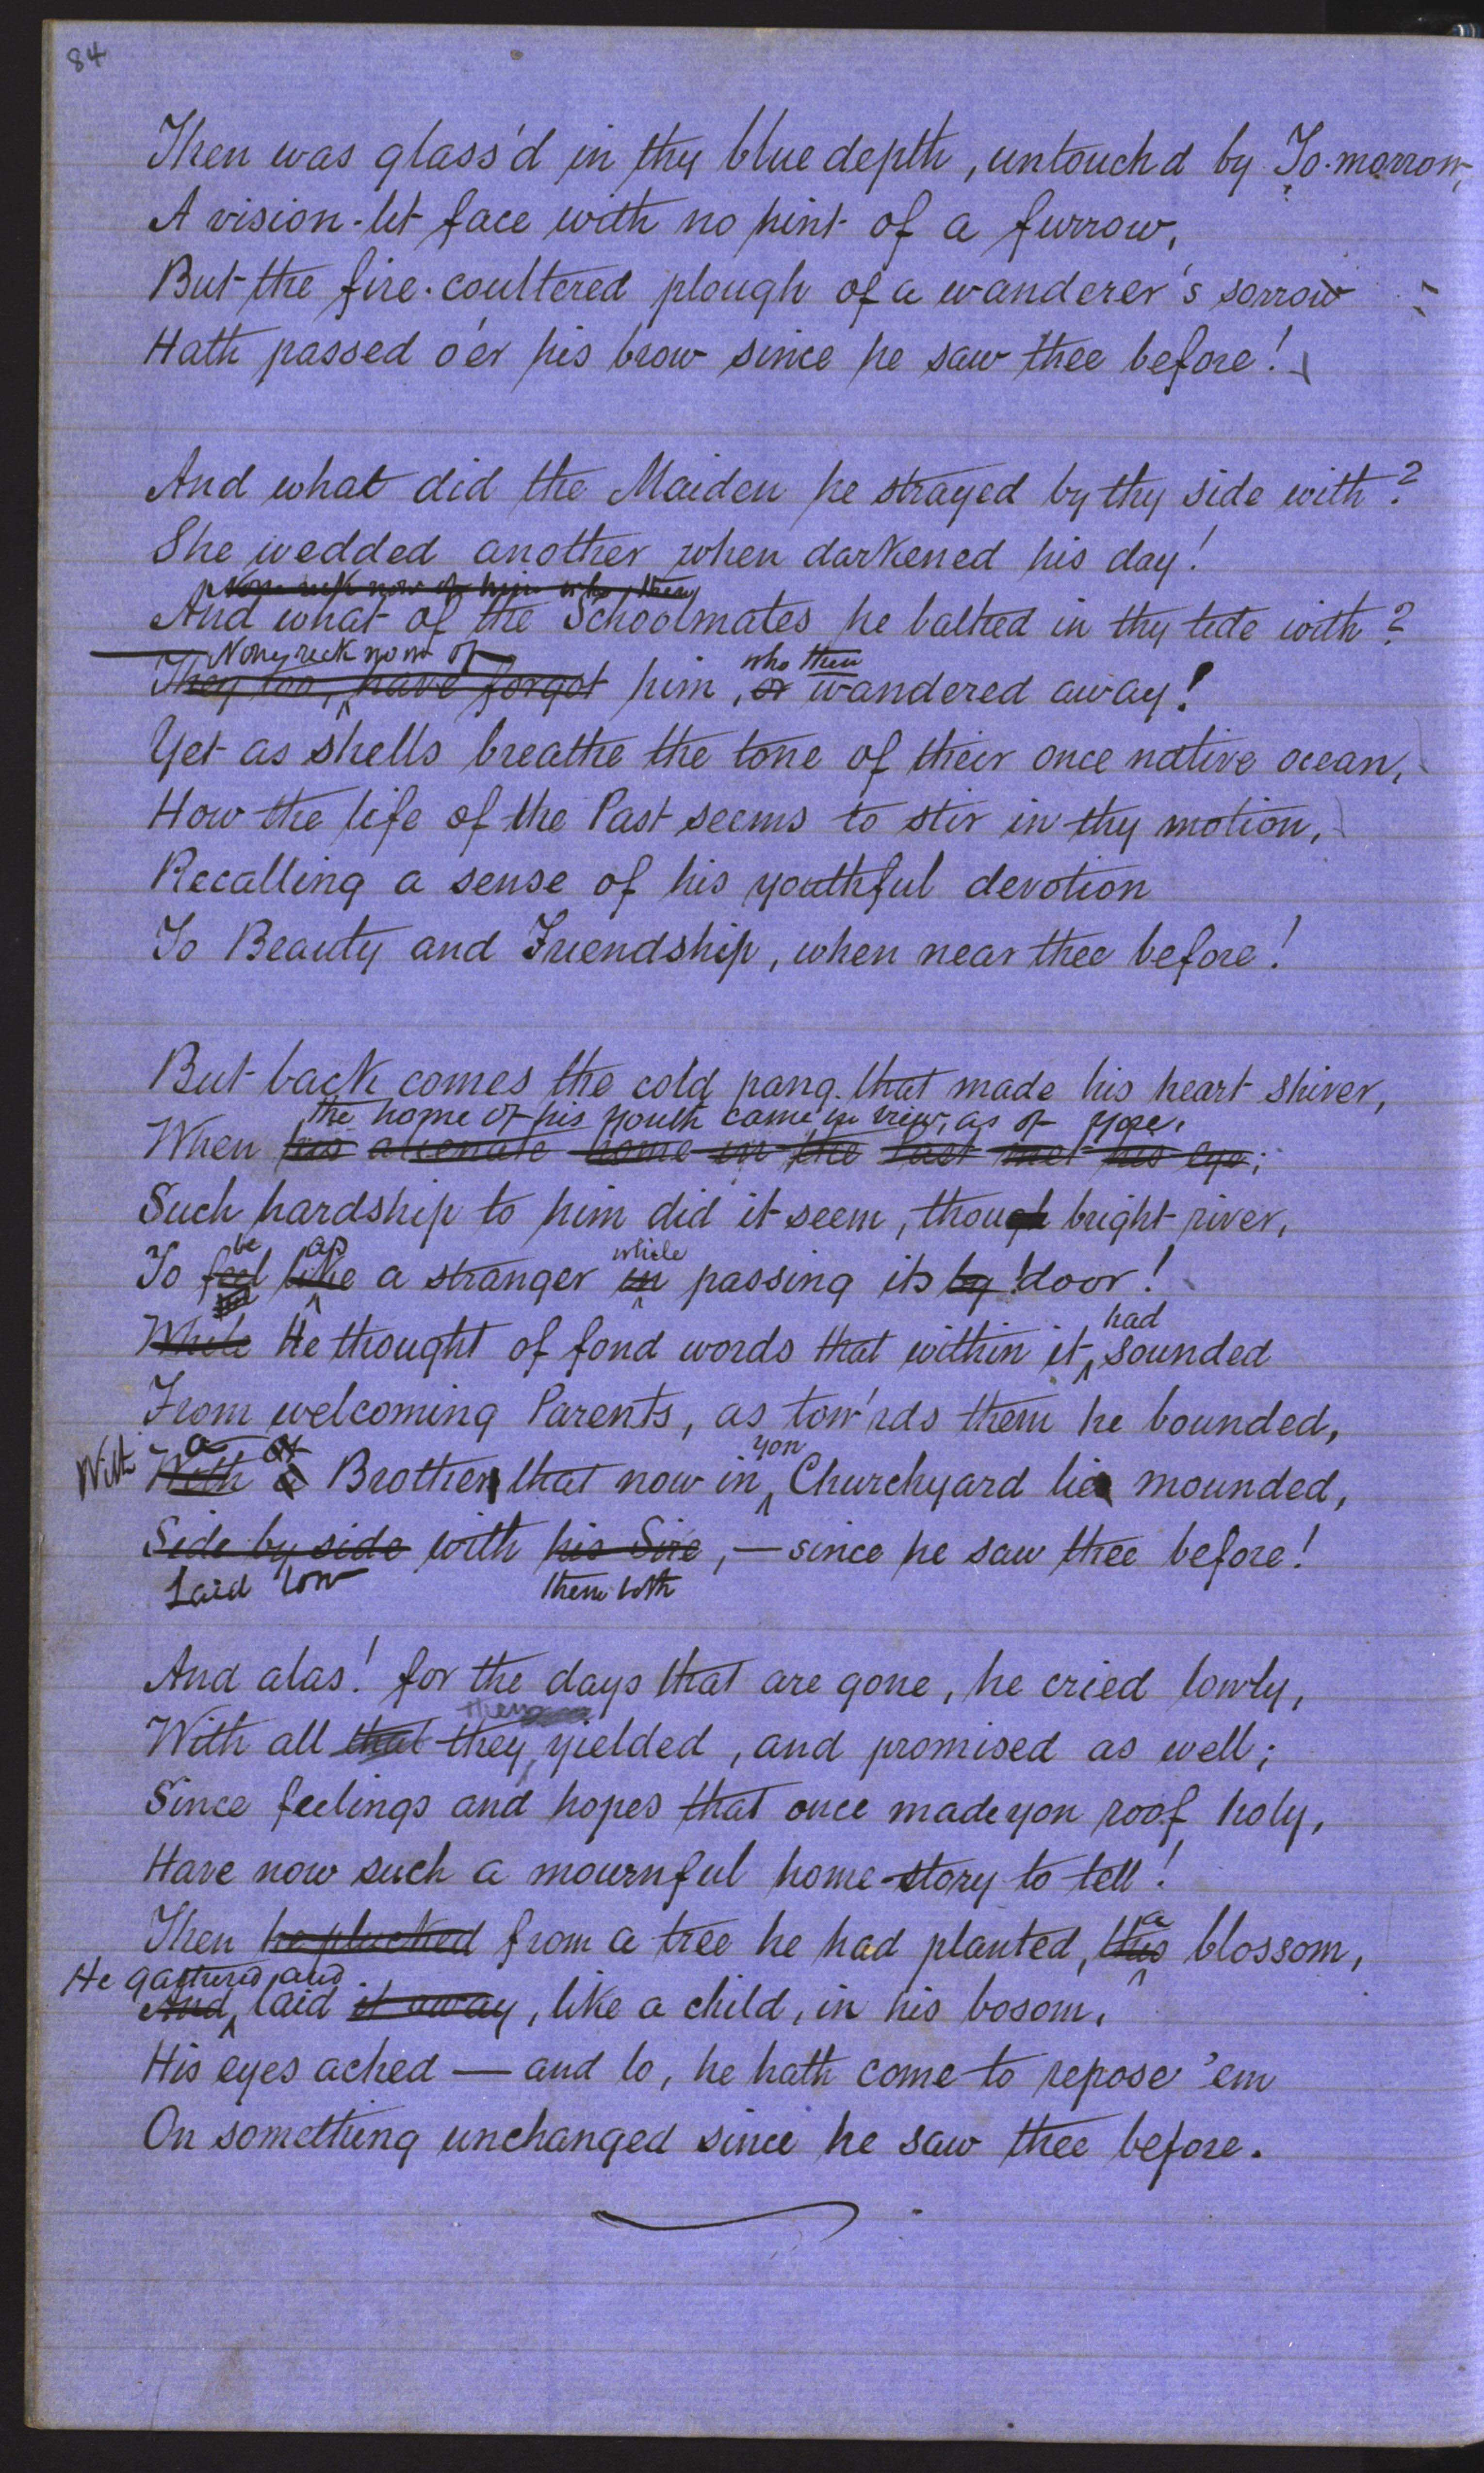 84
Then was glass'd in thy blue depth, untouch'd by To-morrow,
A vision-lit face with no hint of a furrow,
But the fire-coultered plough of a wanderer's sorrow
Hath passed o'er his brow since he saw thee before!
And what did the Maiden he strayed by thy side with?
She wedded another when darkened his day!
None reck now of him who then
And what of the Schoolmates he balked in thy tide with?
None reck now of who then
They too, have forgot him, or wandered away!
Yet as shells breathe the tone of their once native ocean,
How the life of the Past seems to stir in thy motion,
Recalling a sense of his youthful devotion
To Beauty and Friendship, when near thee before!
But back comes the cold pang that made his heart shiver,
the home of his youth came in view, as of yore,
When his alienate home in the last met his eye;
Such hardship to him did it seem, thou bright river,
be as while
To feel like a stranger in passing its by door!
had
While He thought of fond words that within it sounded
From welcoming Parents, as tow'rds them he bounded,
a yon
With With a Brother that now in Churchyard lie mounded,
Side by side with his Sire, — since he saw thee before!
Laid low them both
And alas! for the days that are gone, he cried lowly,
then
With all that they yielded, and promised as well;
Since feelings and hopes that once made yon roof holy,
Have now such a mournful home-story to tell!
a
Then he plucked from a tree he had planted, this blossom,
He gathered, and
And laid it away, like a child, in his bosom,
His eyes ached — and lo, he hath come to repose 'em
On something unchanged since he saw thee before.